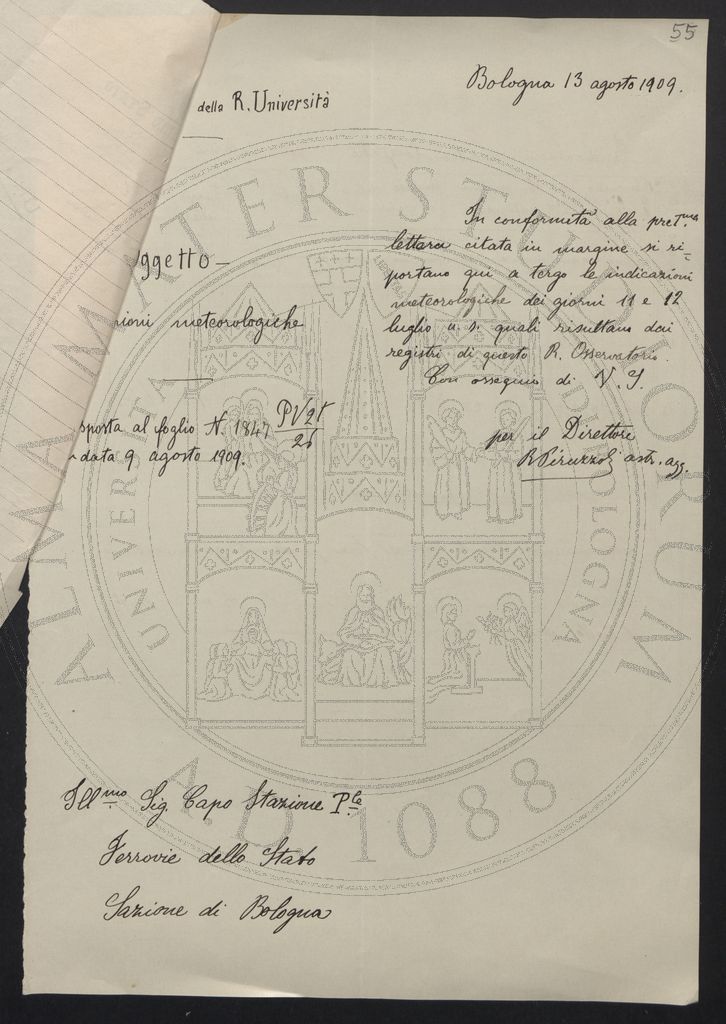 55
Bologna 13 agosto 1909.
della R. Università
In conformità alla pret.ma
lettera citata in margine si ri-
portano qui a tergo le indicazioni
meteorologiche dei giorni 11 e 12
luglio u. s. quali risultano dai
registri di questo R. Osservatorio.
Con ossequio di V. S.
ggetto —
ioni meteorologiche
sposta al foglio N. 1847 PV21/26
data 9 agosto 1909.
per il Direttore
R Pirazzoli astr. agg.
Ill.mo Sig Capo Stazione P.le
Ferrovie dello Stato
Sazione di Bologna
ALMA MATER STUDIORUM
UNIVERSITÀ DI BOLOGNA
A.D. 1088